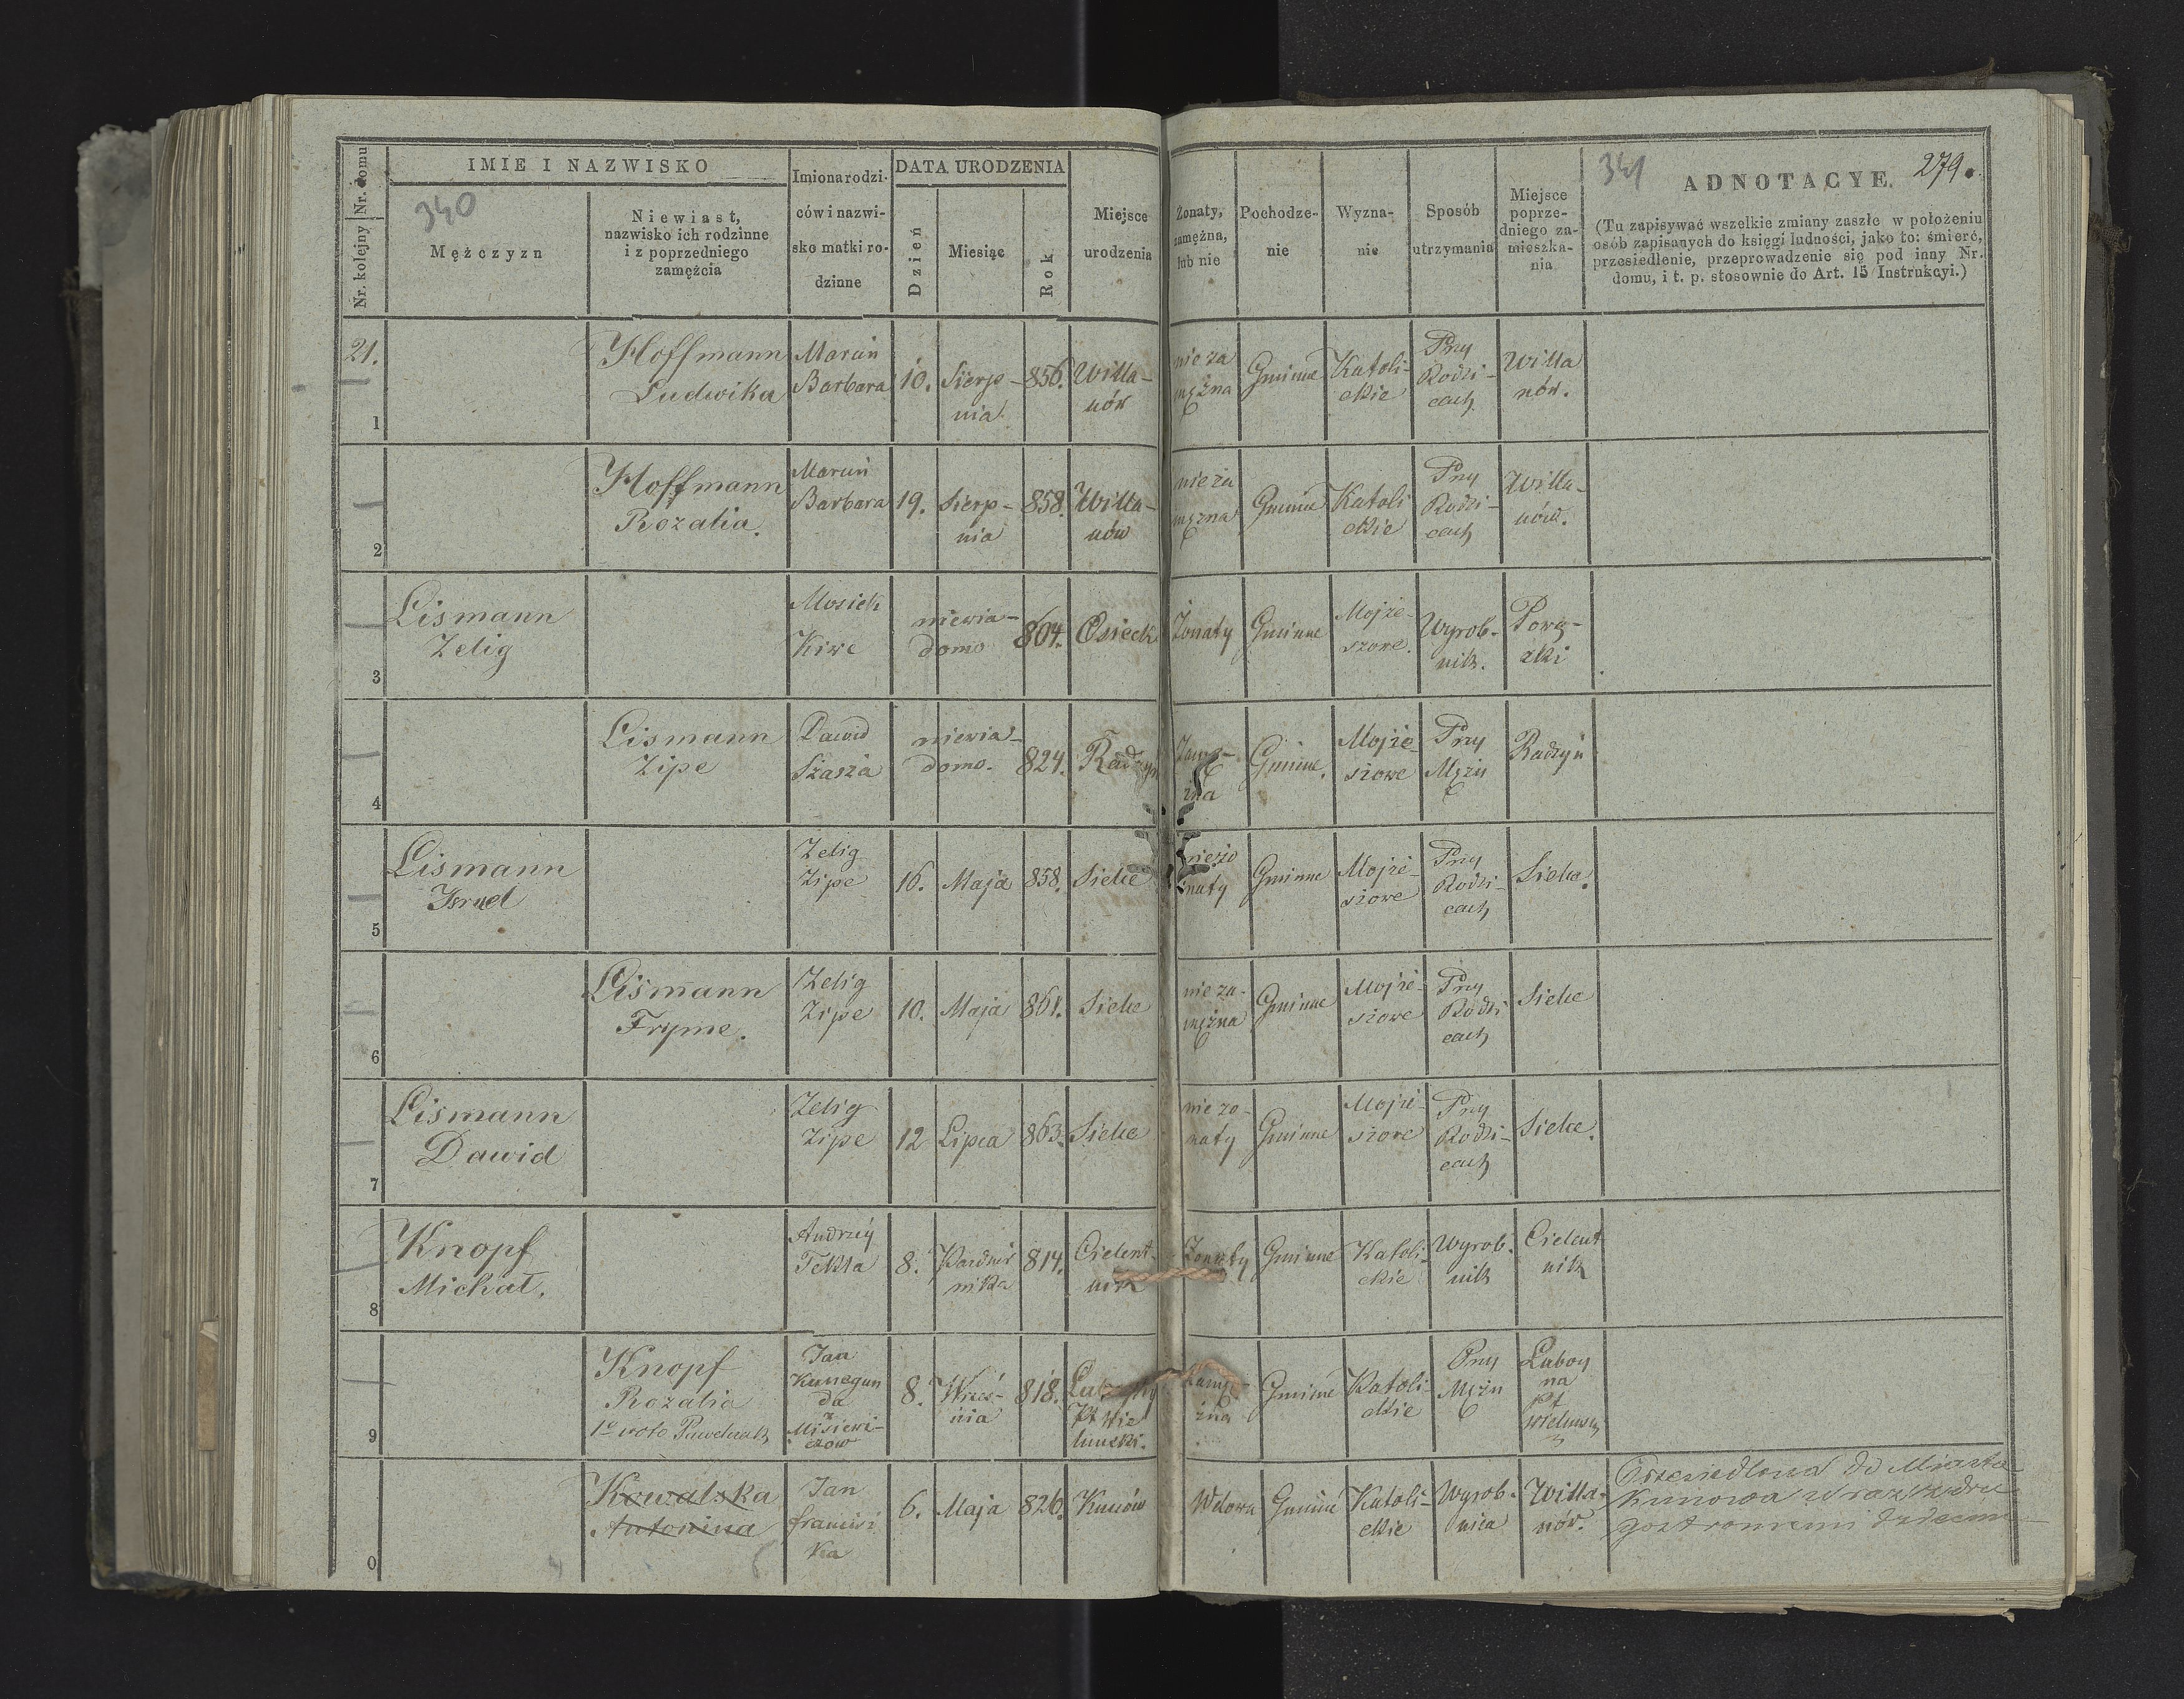 Nr. domu
Nr. kolejny
IMIE I NAZWISKO
340
Mężczyzn
Niewiast,
nazwisko ich rodzinne
i z poprzedniego
zamężcia
Imiona rodzi-
ców i nazwi-
sko matki ro-
dzinne
DATA URODZENIA
Dzień
Miesiąc
Rok
Miejsce
urodzenia
Żonaty,
zamężna,
lub nie
Pochodze-
nie
Wyzna-
nie
Sposób
utrzymania
Miejsce
poprze-
dniego za-
mieszka-
nia
341
ADNOTACYE.
279.
(Tu zapisywać wszelkie zmiany zaszłe w położeniu
osób zapisanych do księgi ludności, jako to: śmierć,
przesiedlenie, przeprowadzenie się pod inny Nr.
domu, i t. p. stosownie do Art. 15 Instrukcyi.)
21.
1
Hoffmann
Ludwika
Marcin
Barbara
10.
Sierp-
nia
856.
Willa-
nów
nie za
mężna
Gminne
Katoli-
ckie
Przy
Rodzi-
cach
Willa
nów.
2
Hoffmann
Rozalia.
Marcin
Barbara
19.
Sierp-
nia
858.
Willa-
nów
nie za
mężna
Gminne
Katoli
ckie
Przy
Rodzi-
cach
Willa-
nów.
3
Lismann
Zelig
Mosiek
Kiwe
niewia-
domo
864.
Osieck
Żonaty
Gminne
Mojże-
szowe.
Wyrob-
nik.
Pową-
zki
4
Lismann
Zipe
Dawid
Szasza
niewia-
domo.
824.
Radzyn
Zamę-
żna
Gminne.
Mojże-
szowe
Przy
Mężu
Radzyń
5
Lismann
Israel
Zelig
Zipe
16.
Maja
858.
Sielce
nieżo
naty
Gminne
Mojże-
szowe
Przy
Rodzi-
cach
Sielce.
6
Lismann
Fryme.
Zelig
Zipe
10.
Maja
861.
Sielce
nie za-
mężna
Gminne
Mojże-
szowe
Przy
Rodzi
cach
Sielce
7
Lismann
Dawid
Zelig
Zipe
12
Lipca
863.
Sielce
nie żo-
naty
Gminne
Mojże-
szowe
Przy
Rodzi-
cach
Sielce.
8
Knopf
Michał.
Andrzej
Tekla
8.
Paździer
nika
814.
Cielent-
nik
Żonaty
Gminne
Katoli-
ckie
Wyrob-
nik
Cielent
nik
9
Knopf
Rozalia
1º voto
Jan
Kunegun
da
Misiewi-
czow
8.
Wrześ-
nia
818.
Pt Wie
luński.
Zamę-
żna
Gminne
Katoli-
ckie
Przy
Mężu
na
Pt
0
Kowalska
Antonina
Jan
Francisz
ka
6.
Maja
826.
Kunów
Wdowa
Gminne
Katoli-
ckie
Wyrob-
nica
Willa-
nów.
Przesiedlona do Miasta
Kunowa wraz z
dziećmi